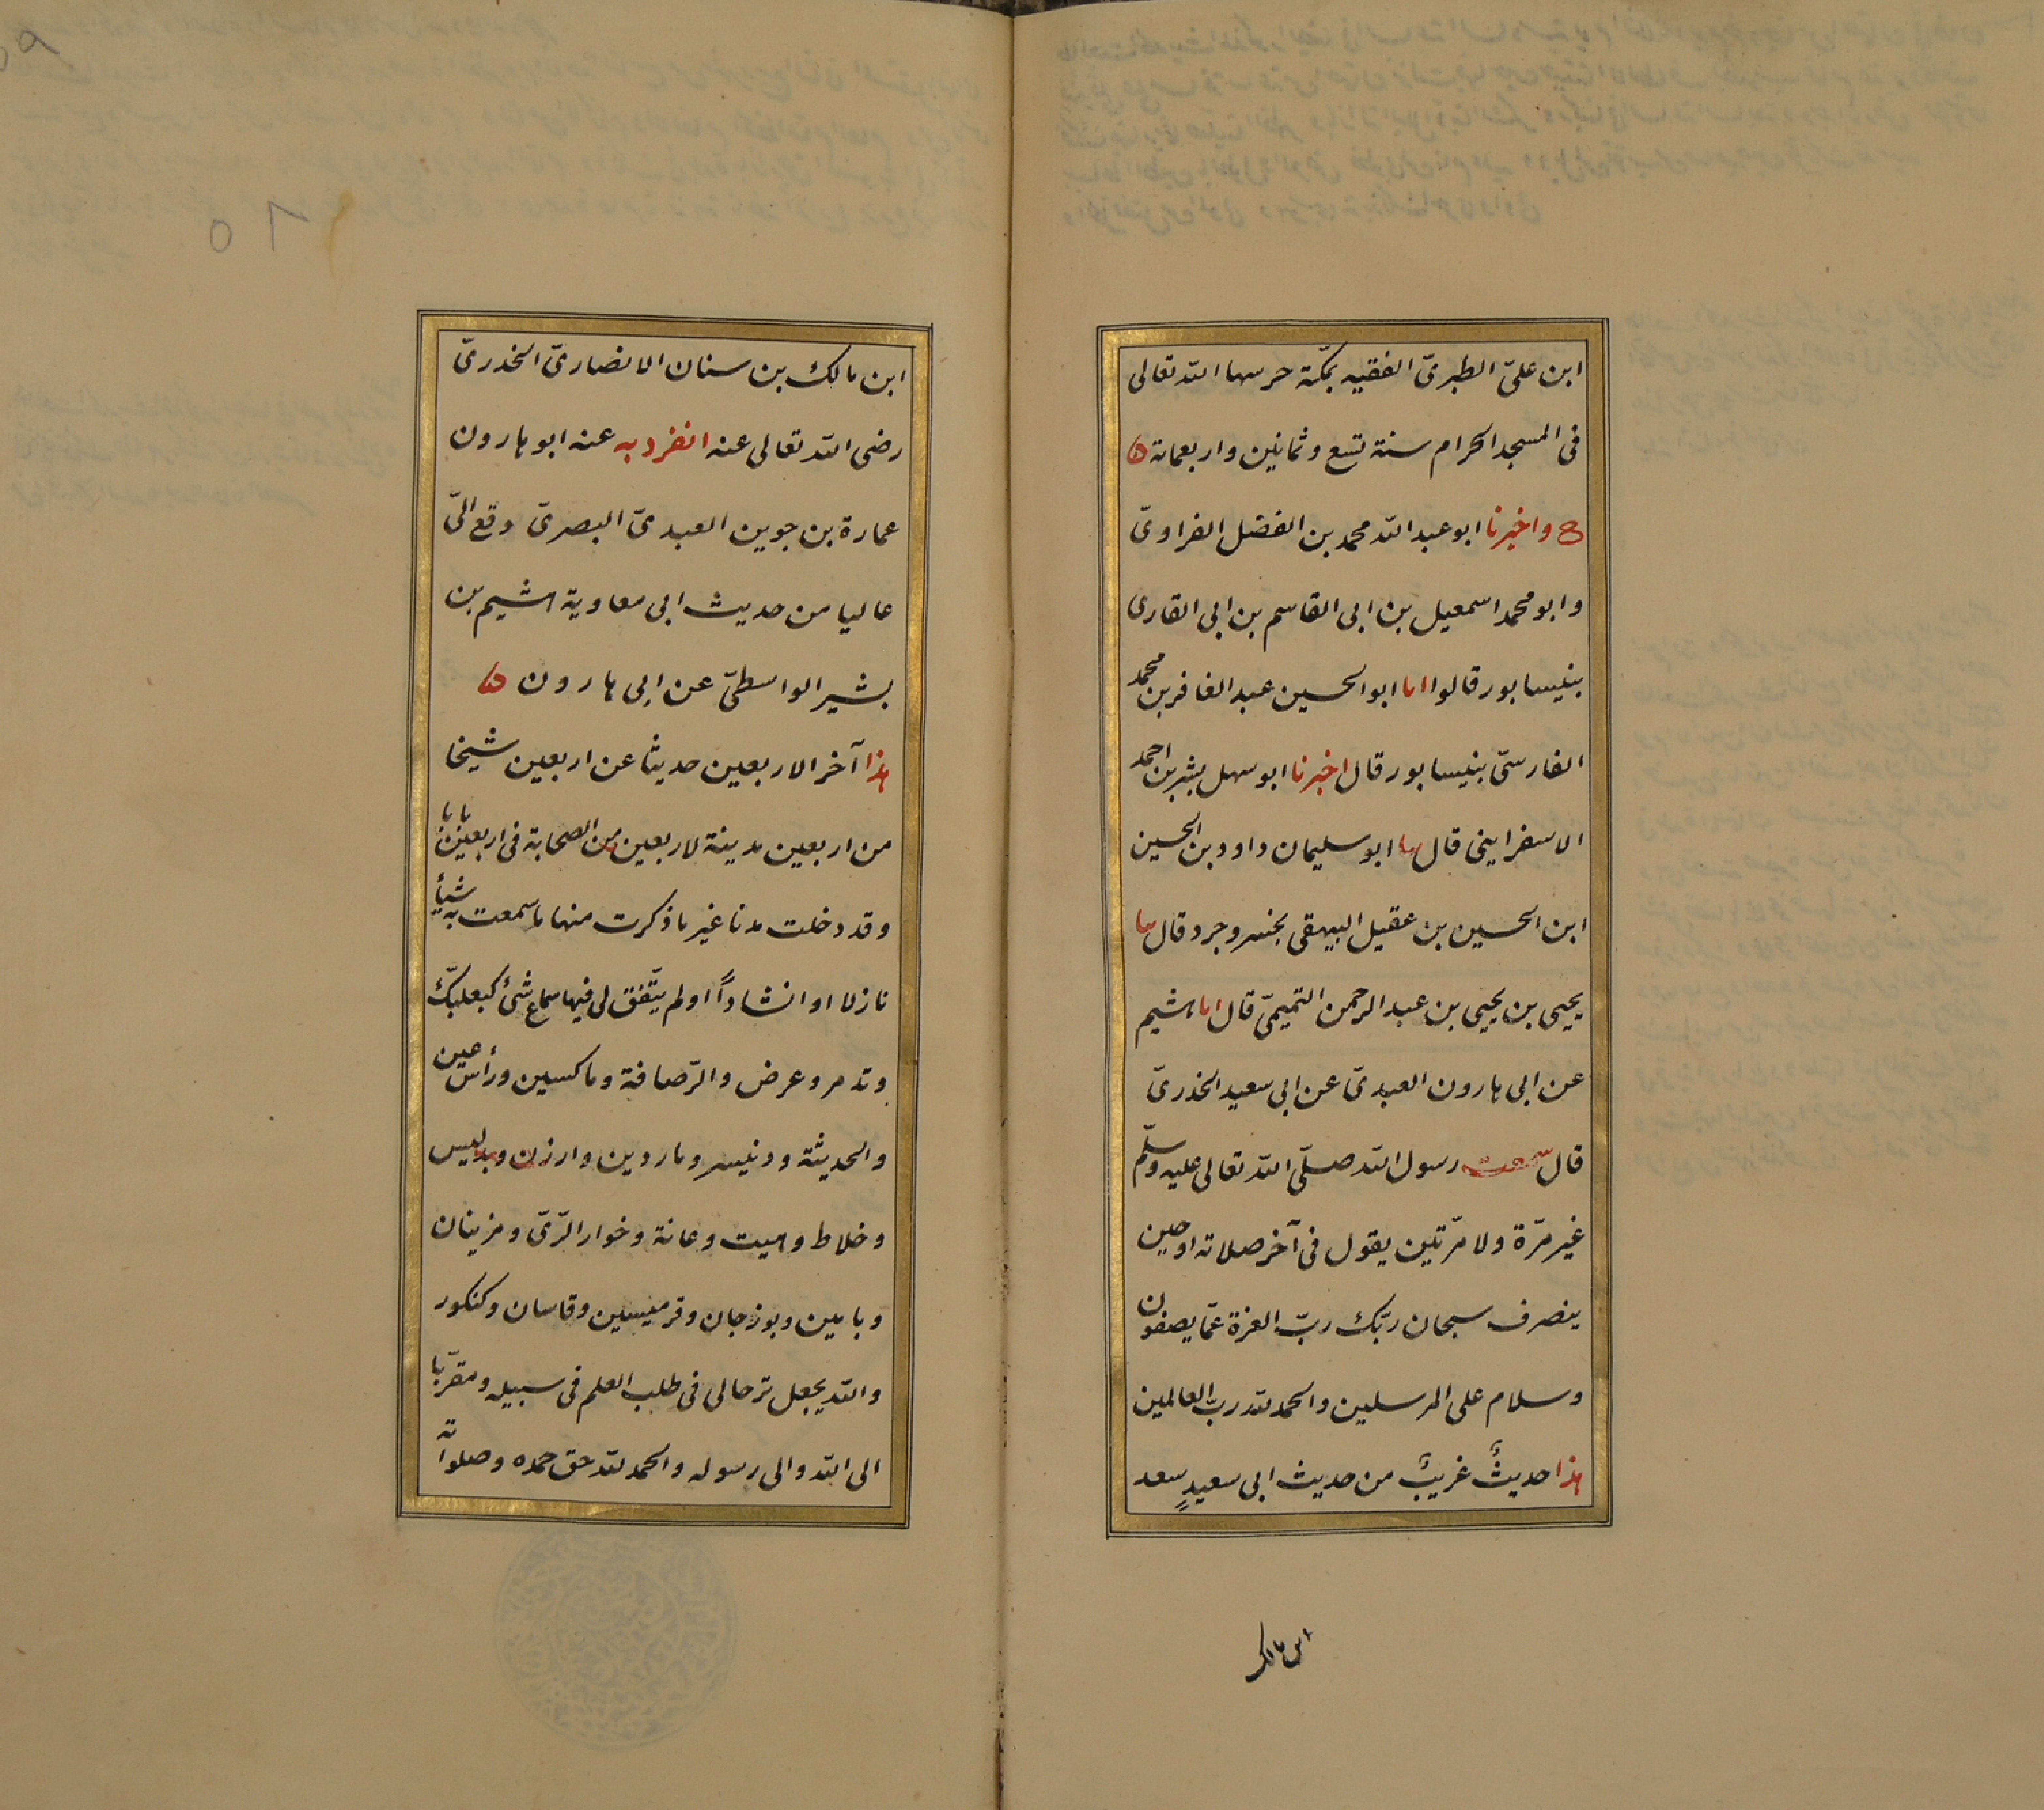 ابن علىّ الطبرىّ الفقيه بمكّة حرسها الله تعالى
فى المسجد الحرام سنة تسع وثمانين واربعماة
ح واخبرنا ابو عبد الله محمد بن الفضل الفراوىّ
وابو محمد اسمعيل بن ابى القاسم بن ابى القارى
بنيسابور قالوا انا ابو الحسين عبد الغافر بن محمد
الفارسىّ بنيسابور قال اخبرنا ابو سهل بشر بن احمد
الاسفراينى قال نا ابو سليمان داود بن الحسين
ابن الحسين بن عقيل البيهقى بخسروجرد قال نا
يحيى بن يحيى بن عبد الرحمن التميمىّ قال انا هشيم
عن ابى هارون العبدىّ عن ابى سعيد الخدرىّ
قال سمعت رسول الله صلّى الله تعالى عليه وسلّم
غير مرّة ولا مرّتين يقول فى آخر صلاته او حين
ينصرف سبحان ربّك ربّ العزة عمّا يصفون
وسلام على المرسلين والحمد لله ربّ العالمين
هذا حديثٌ غريبٌ من حديث ابى سعيدٍ سعد
ابن مالك
ابن مالك بن سنان الانصارىّ الخدرىّ
رضى الله تعالى عنه انفرد به عنه ابو هارون
عمارة بن جوين العبدىّ البصرىّ وقع الىّ
عاليا من حديث ابى معاوية هشيم بن
بشير الواسطىّ عن ابى هارون
هذا آخر الاربعين حديثا عن اربعين شيخا
من اربعين مدينة لاربعين من الصحابة فى اربعين بابا
وقد دخلت مدنا غير ما ذكرت منها ما سمعت به شيأ
نازلا او انشاداً او لم يتّفق لى فيها سماع شئ كبعلبكّ
وتدمر وعرض والرّصافة وماكسين ورأس عين
والحديثة ودنيسر وماردين وارزن وبدليس
وخلاط وهيت وعانة وخوار الرّىّ ومزينان
وبامين وبوزجان وقرميسين وقاسان وكنكور
والله يجعل ترحالى فى طلب العلم فى سبيله ومقرّبا
الى الله والى رسوله والحمد لله حق حمده وصلواته